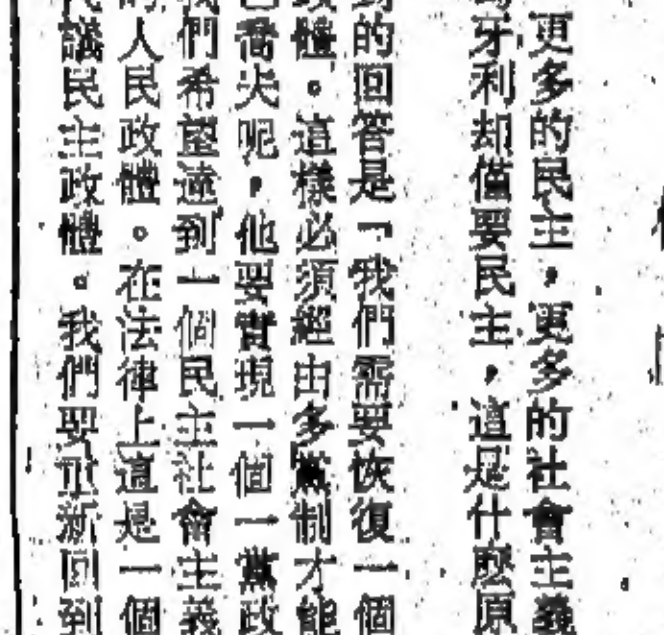 更多的民主，更多的社會主義
牙利却僅要民主，這是什麼原
的回答是「我們需要恢復一個
政體。這樣必須經由多黨制才能
喬夫呢，他要實現一個一黨政
我們希望達到一個民主社會主義
的人民政體。在法律上這是一個
議民主政體。我們要重新回到